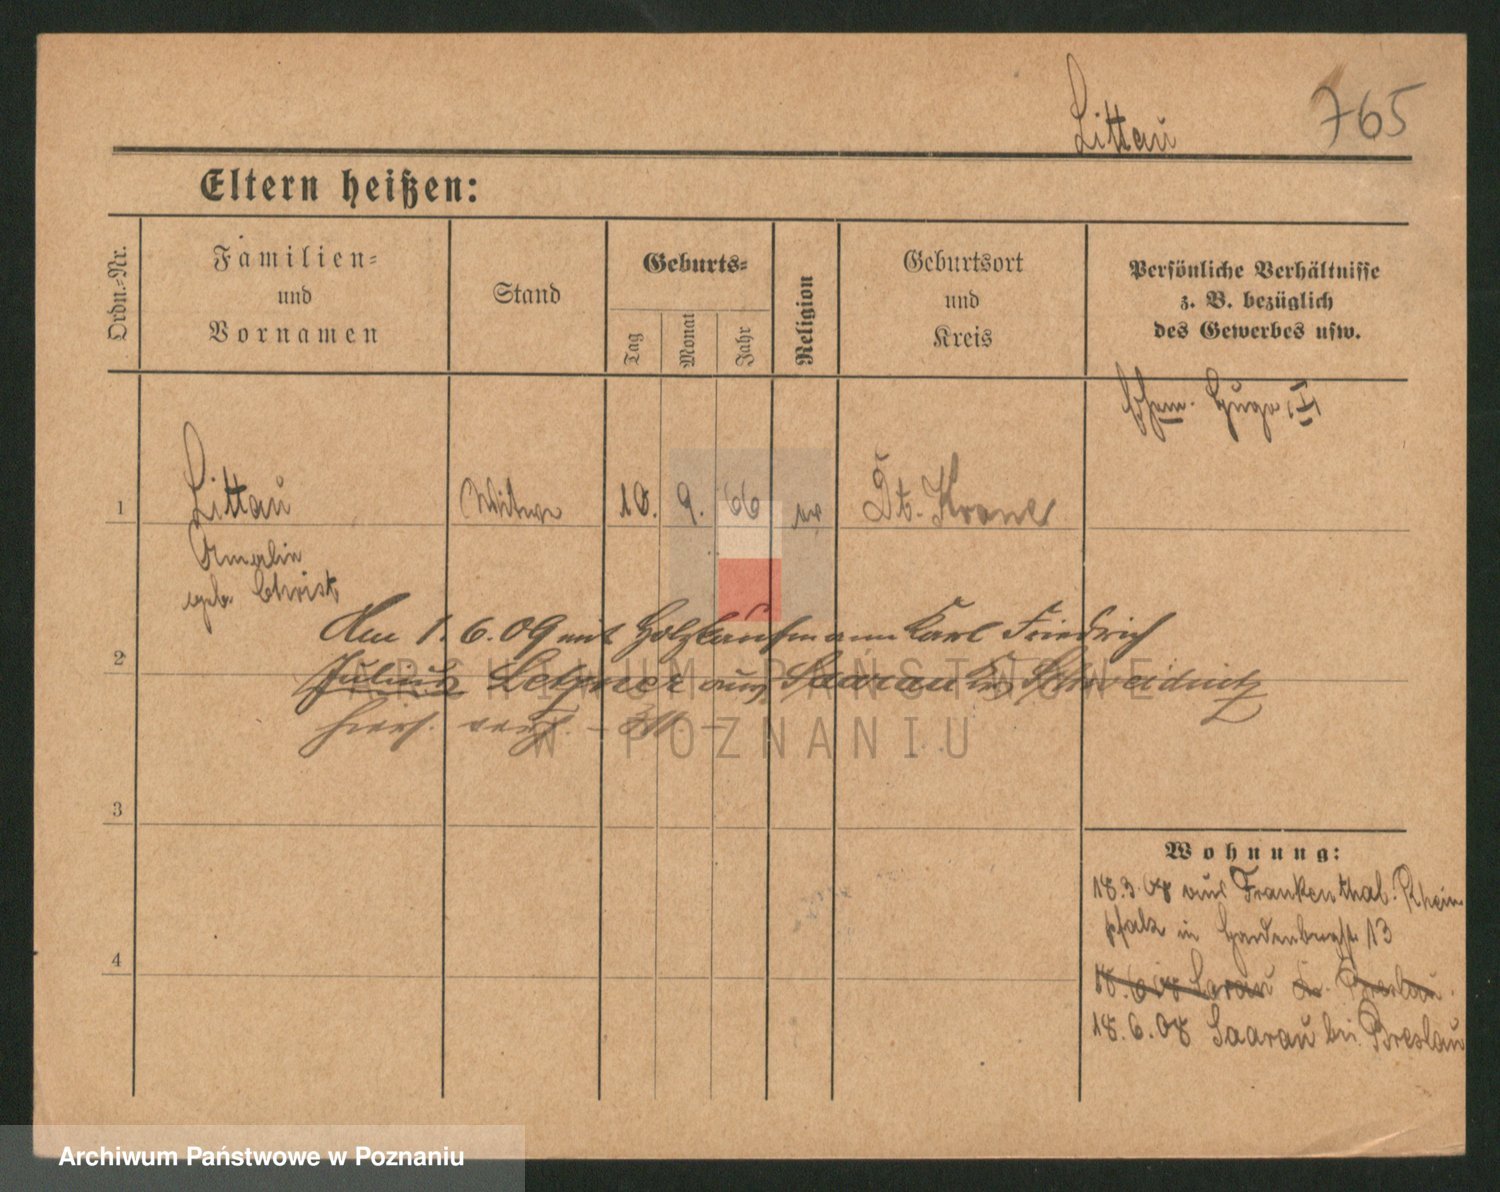 Littau 765
Eltern heißen:
Ordn.-Nr.
Familien-
und
Vornamen
Stand
Geburts-
Tag
Monat
Jahr
Religion
Geburtsort
und
Kreis
Persönliche Verhältnisse
z. B. bezüglich
des Gewerbes usw.
Ehem. Hugo
1 Littau Witwe 18. 9. 66 Dt. Krone
Amalin
geb. Christ
Am 1.6.09 mit Holzkaufmann Karl Friedrich
2
Julius aus Saarau Krs Schweidnitz
hier verh.
3
Wohnung:
18.3.08 aus Frankenthal. Rhein-
pfalz in Hardenbergstr. 13
4
18.6.08 Sarau b. Breslau.
18.6.08 Saarau bei Breslau
ARCHIWUM PAŃSTWOWE
W POZNANIU
Archiwum Państwowe w Poznaniu